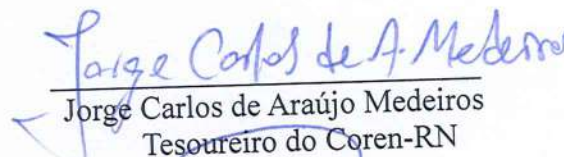 Jorge Carlos de A. Medeiros
Jorge Carlos de Araújo Medeiros
Tesoureiro do Coren-RN